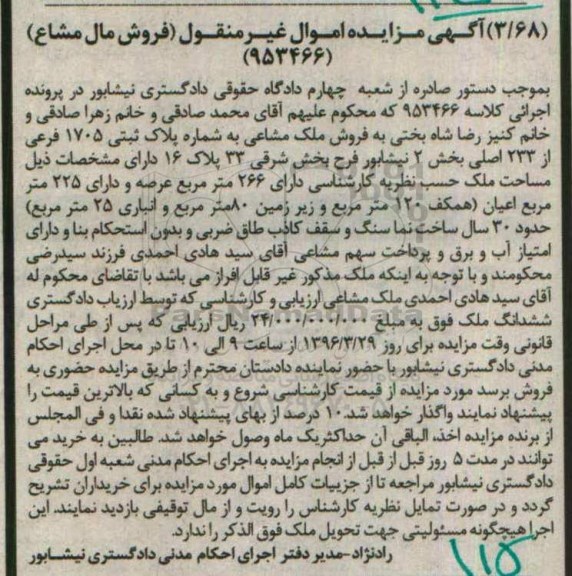 (۳/۶۸) آگهی مزایده اموال غیر منقول (فروش مال مشاع)
(۹۵۳۴۶۶)
بموجب دستور صادره از شعبه چهارم دادگاه حقوقی دادگستری نیشابور در پرونده
اجرائی کلاسه ۹۵۳۴۶۶ که محکوم علیهم آقای محمد صادقی و خانم زهرا صادقی و
خانم کنیز رضا شاه بختی به فروش ملک مشاعی به شماره پلاک ثبتی ۱۷۰۵ فرعی
از ۲۳۳ اصلی بخش ۲ نیشابور فرح بخش شرقی ۳۳ پلاک ۱۶ دارای مشخصات ذیل
مساحت ملک حسب نظریه کارشناسی دارای ۲۶۶ متر مربع عرصه و دارای ۲۲۵ متر
مربع اعیان (همکف ۱۲۰ متر مربع و زیر زمین ۸۰متر مربع و انباری ۲۵ متر مربع)
حدود ۳۰ سال ساخت نما سنگ و سقف کاذب طاق ضربی و بدون استحکام بنا و دارای
امتیاز آب و برق و پرداخت سهم مشاعی آقای سید هادی احمدی فرزند سیدرضی
محکومند و با توجه به اینکه ملک مذکور غیر قابل افراز می باشد با تقاضای محکوم له
آقای سید هادی احمدی ملک مشاعی ارزیابی و کارشناسی که توسط ارزیاب دادگستری
ششدانگ ملک فوق به مبلغ ۲۴/۰۰۰/۰۰۰/۰۰۰ ریال ارزیابی که پس از طی مراحل
قانونی وقت مزایده برای روز ۱۳۹۶/۳/۲۹ از ساعت ۹ الی ۱۰ تا در محل اجرای احکام
مدنی دادگستری نیشابور با حضور نماینده دادستان محترم از طریق مزایده حضوری به
فروش برسد مورد مزایده از قیمت کارشناسی شروع و به کسانی که بالاترین قیمت را
پیشنهاد نمایند واگذار خواهد شد. ۱۰ درصد از بهای پیشنهاد شده نقدا و فی المجلس
از برنده مزایده اخذ، الباقی آن حداکثریک ماه وصول خواهد شد. طالبین به خرید می
توانند در مدت ۵ روز قبل از قبل از انجام مزایده به اجرای احکام مدنی شعبه اول حقوقی
دادگستری نیشابور مراجعه تا از جزییات کامل اموال مورد مزایده برای خریداران تشریح
گردد و در صورت تمایل نظریه کارشناس را رویت و از مال توقیفی بازدید نمایند. این
اجرا هیچگونه مسئولیتی جهت تحویل ملک فوق الذکر را ندارد.
رادنژاد-مدیر دفتر اجرای احکام مدنی دادگستری نیشابور
۱۱۵